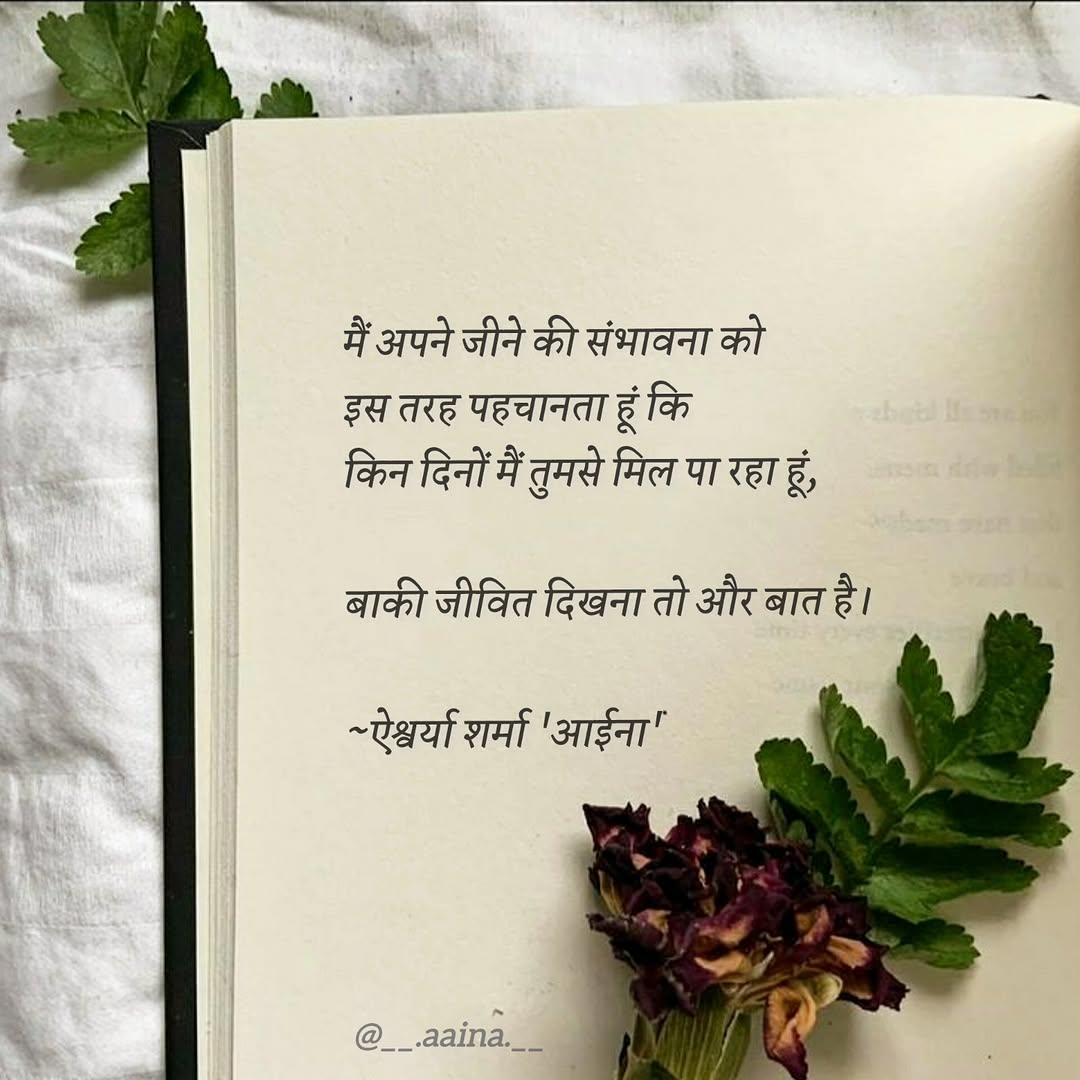 मैं अपने जीने की संभावना को
इस तरह पहचानता हूं कि
किन दिनों मैं तुमसे मिल पा रहा हूं,
बाकी जीवित दिखना तो और बात है।
~ऐश्वर्या शर्मा 'आईना'
@__.aaina.__